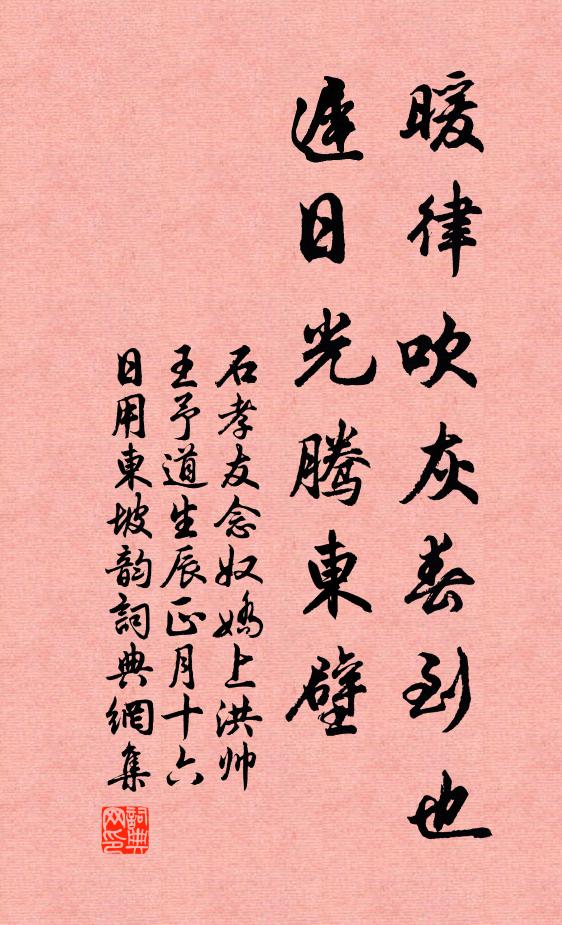 暖律吹灰春到也
遲日光騰東壁
石孝友念奴嬌上洪帅
王予道生辰正月十六
日用東坡韵詞典網集
詞典
网印